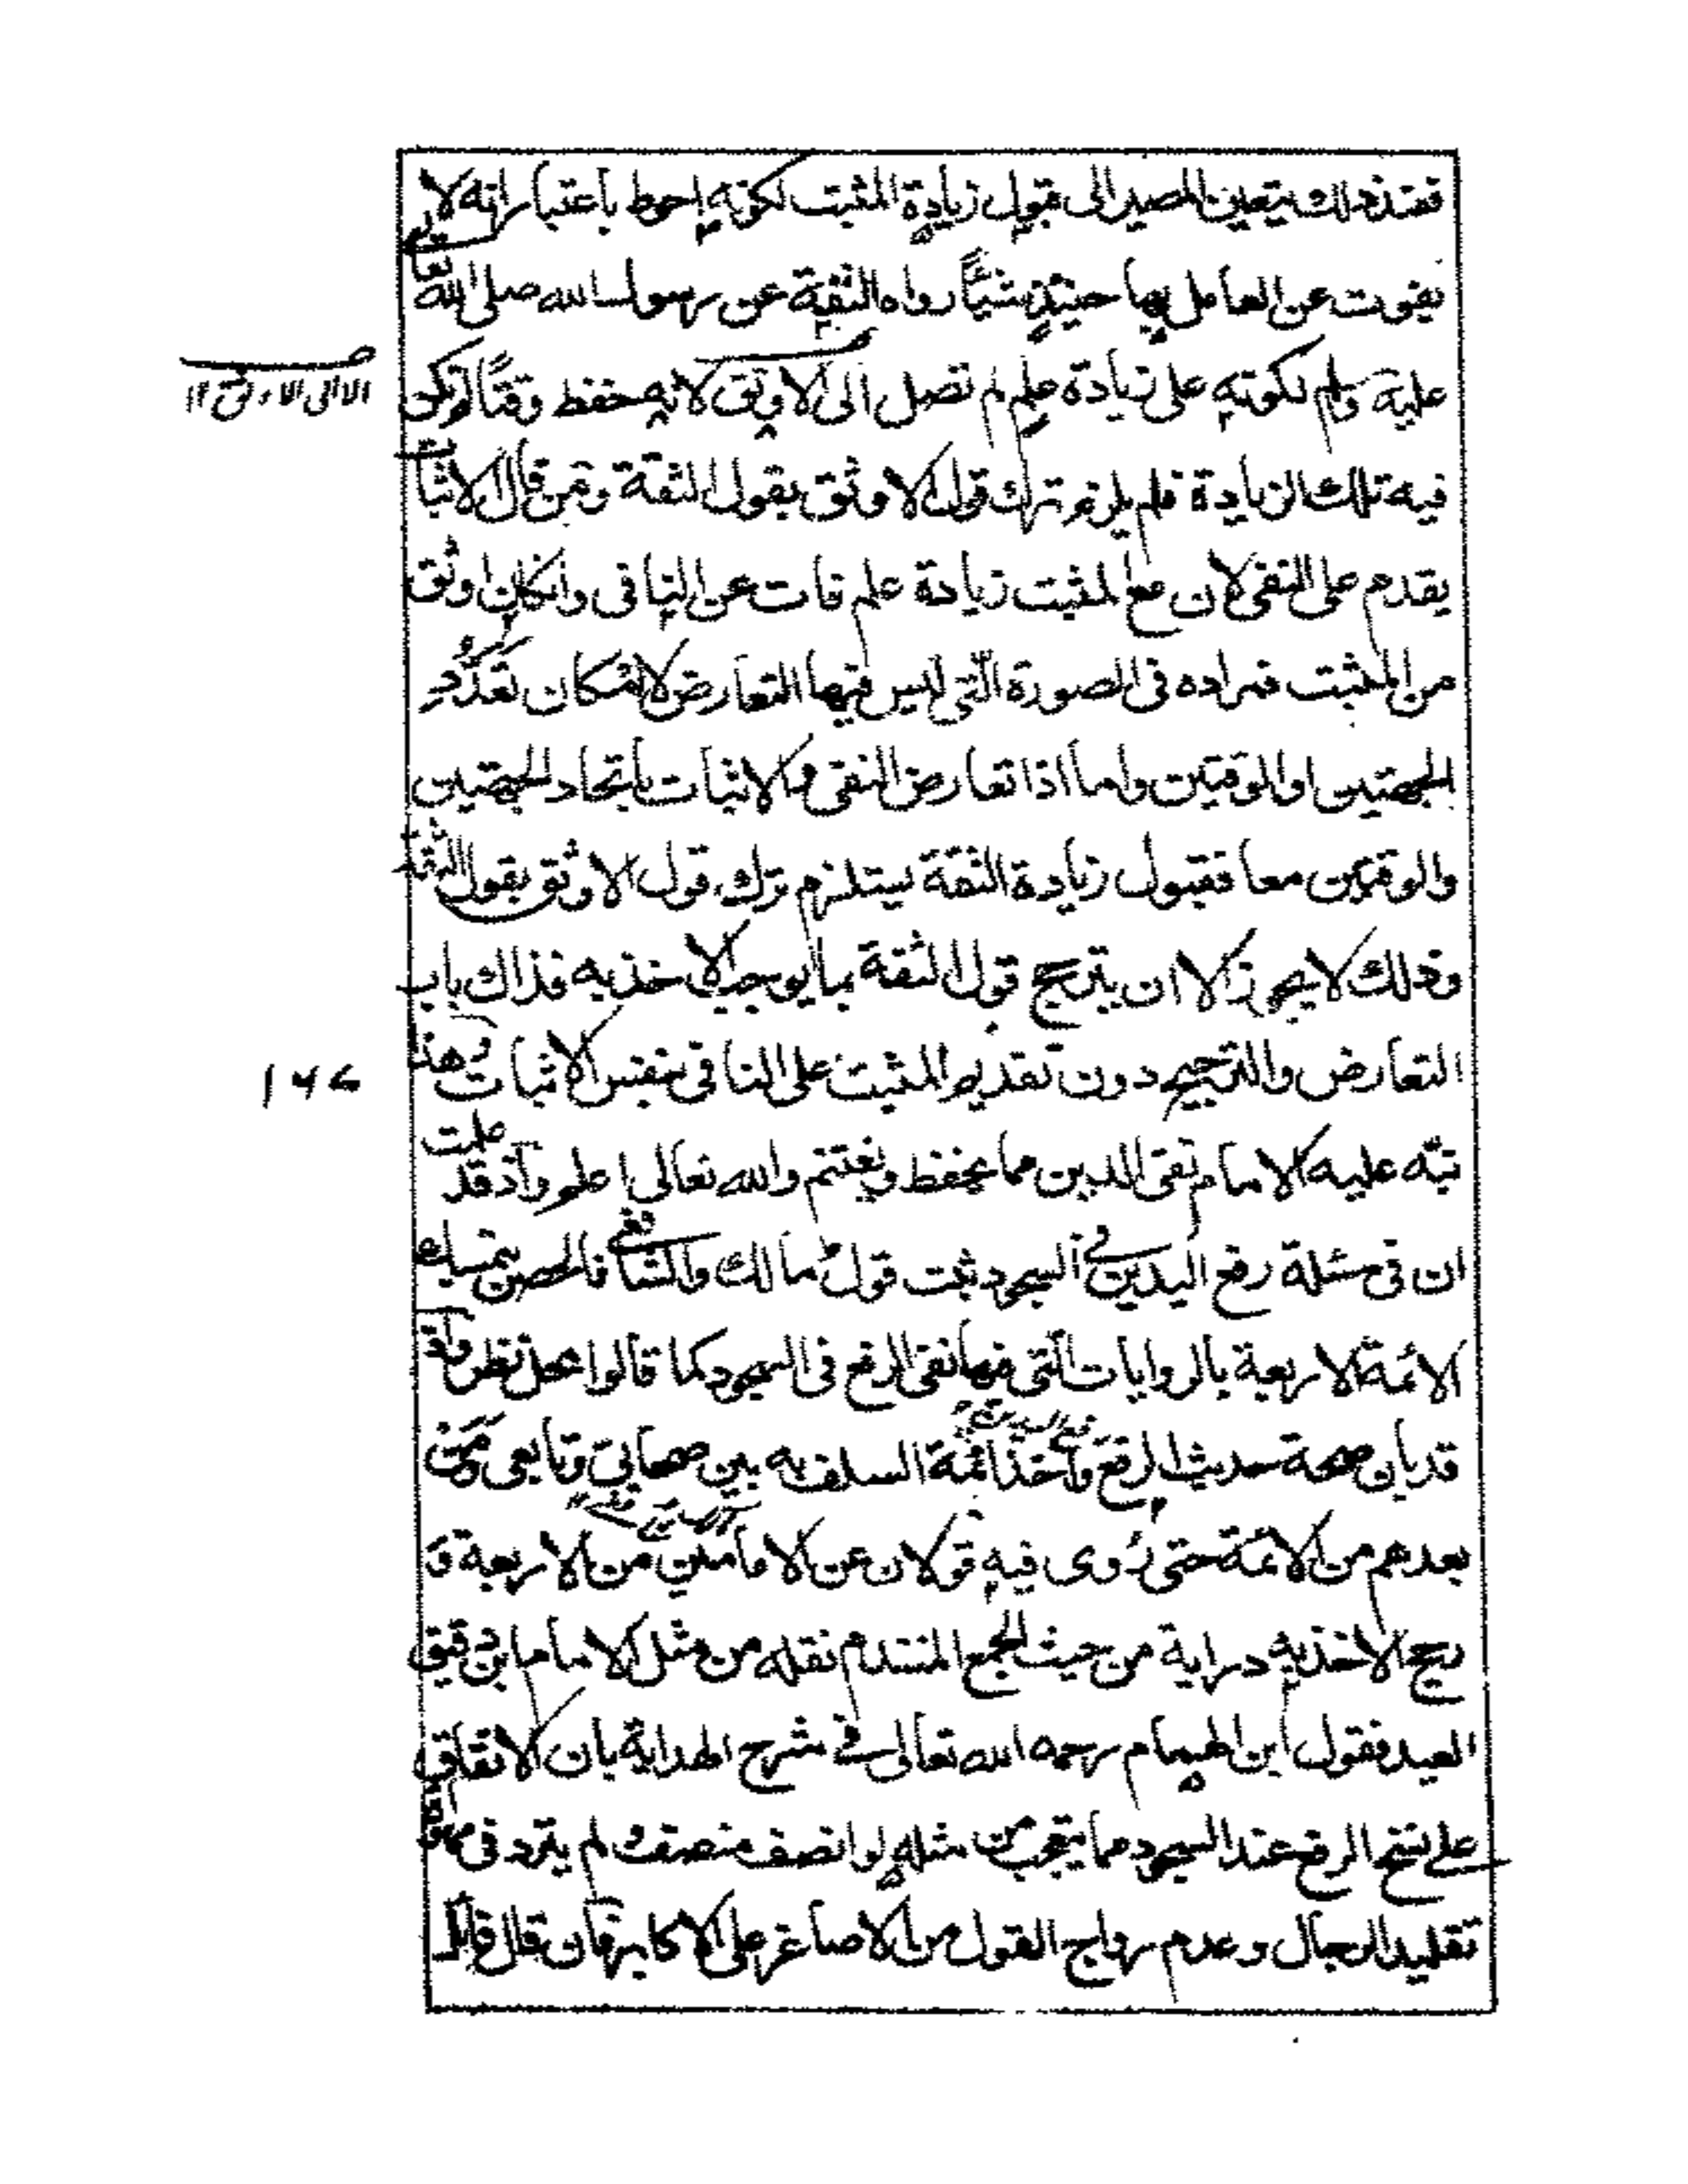 فعند ذلك يتعين المصير الى قبول زيادة المثبت لكونه احوط باعتبار انه لا
يفوت عن العامل بها حينئذٍ شيئًا رواه الثقة عن رسول الله صلى الله تعا
عليه ولم لكونه على زيادة علم لم تصل الى الاوثق لانه حفظ وقتًا لم يكن
الا الى الاوثق ١٢
فيه تلك الزيادة فلم يلزم ترك قول الاوثق بقول الثقة ومن قال الاثبا
يقدم على النفى لان مع المثبت زيادة علم فات عن النافى وان كان اوثق
من المثبت فمراده فى الصورة الّتى ليس فيها التعارض لامكان تعدُّد
الجهتين او الوقتين واما اذا تعارض النفى والاثبات باتحاد الجهتين
والوقتين معا فقبول زيادة الثقة يستلزم ترك قول الاوثق بقول الثقة
وذلك لا يجوز الا ان يترجح قول الثقة بما يوجب الاخذ به فذاك باب
التعارض والترجيح دون تقديم المثبت على النافى بنفس الاثبات وهذا
١٦٧
نبّه عليه الامام تقى الدين مما يحفظ ويغتنم والله تعالى اعلم واذ قد علمت
ان فى مسئلة رفع اليدين فى السجود ثبت قول مالك والشافعى فالحصر بتمسك
الائمة الاربعة بالروايات الّتى فيها نفى الرفع فى السجود كما قالوا محل نظر واذ
قد بان صحة حديث الرفع واخذ ائمة السلف به بين صحابىّ وتابعى ومن
بعدهم من الائمة حتى رُوى فيه قولان عن الامامين من الاربعة و
رجح الاخذ به دراية من حيث الجمع المتقدم نقله من مثل الامام ابن دقيق
العيد فقول ابن الهمام رحمه الله تعالى فى شرح الهداية بان الاتفاق
على نسخ الرفع عند السجود مما يتعجب من مثله لو انصف منصف ولم يتردد فى
تقليد الرجال وعدم رواج القول من الاصاغر على الاكابر فان قال قائل